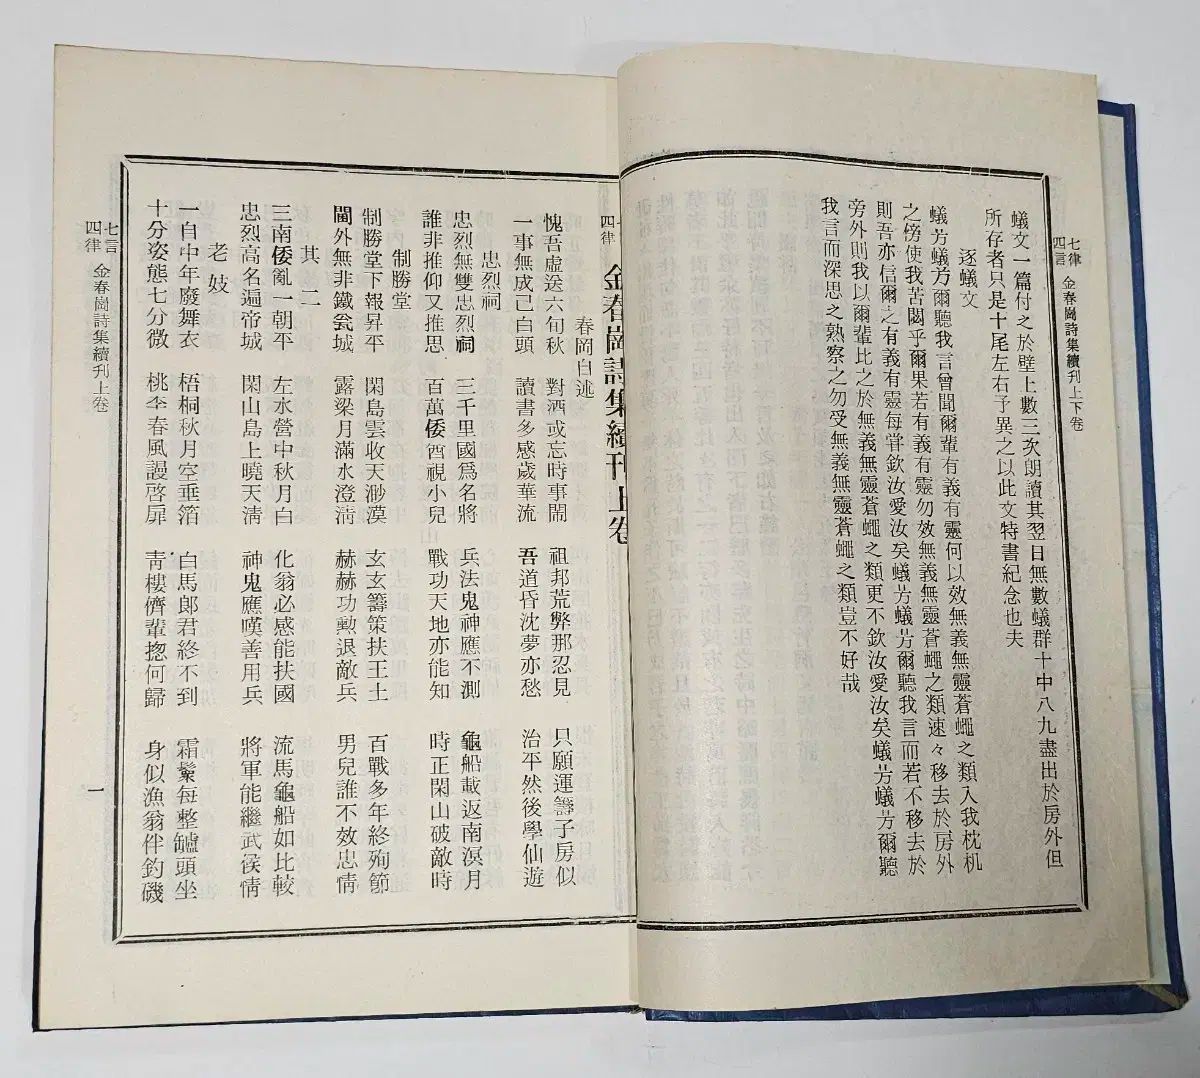 七律
四言
金春崗詩集續刊上下卷
蟻文一篇付之於壁上數三次朗讀其翌日無數蟻群十中八九盡出於房外但
所存者只是十尾左右予異之以此文特書紀念也夫
逐蟻文
蟻方蟻方爾聽我言曾聞爾輩有義有靈何以效無義無靈蒼蠅之類入我枕机
之傍使我苦閎乎爾果若有義有靈勿效無義無靈蒼蠅之類速々移去於房外
則吾亦信爾之有義有靈每甞欽汝愛汝矣蟻方蟻方爾聽我言而若不移去於
旁外則我以爾輩比之於無義無靈蒼蠅之類更不欽汝愛汝矣蟻方蟻方爾聽
我言而深思之熟察之勿受無義無靈蒼蠅之類豈不好哉
七
四律
金春崗詩集續刊上卷
春岡自述
愧吾虛送六旬秋 對酒或忘時事鬧 祖邦荒弊那忍見 只願運籌子房似
一事無成已白頭 讀書多感歲華流 吾道昏沈夢亦愁 治平然後學仙遊
忠烈祠
忠烈無雙忠烈祠 三千里國爲名將 兵法鬼神應不測 龜船載返南溟月
誰非推仰又推思 百萬倭酋視小兒 戰功天地亦能知 時正閑山破敵時
制勝堂
制勝堂下報昇平 閑島雲收天渺漠 玄玄籌策扶王土 百戰多年終殉節
閫外無非鐵瓮城 露梁月滿水澄淸 赫赫功勳退敵兵 男兒誰不效忠情
其二
三南倭亂一朝平 左水營中秋月白 化翁必感能扶國 流馬龜船如比較
忠烈高名遍帝城 閑山島上曉天淸 神鬼應嘆善用兵 將軍能繼武侯情
老妓
一自中年廢舞衣 梧桐秋月空垂箔 白馬郞君終不到 霜鬢每整鑪頭坐
十分姿態七分微 桃李春風謾啓扉 靑樓儕輩摠何歸 身似漁翁伴釣磯
七言
四律
金春崗詩集續刊上卷
一